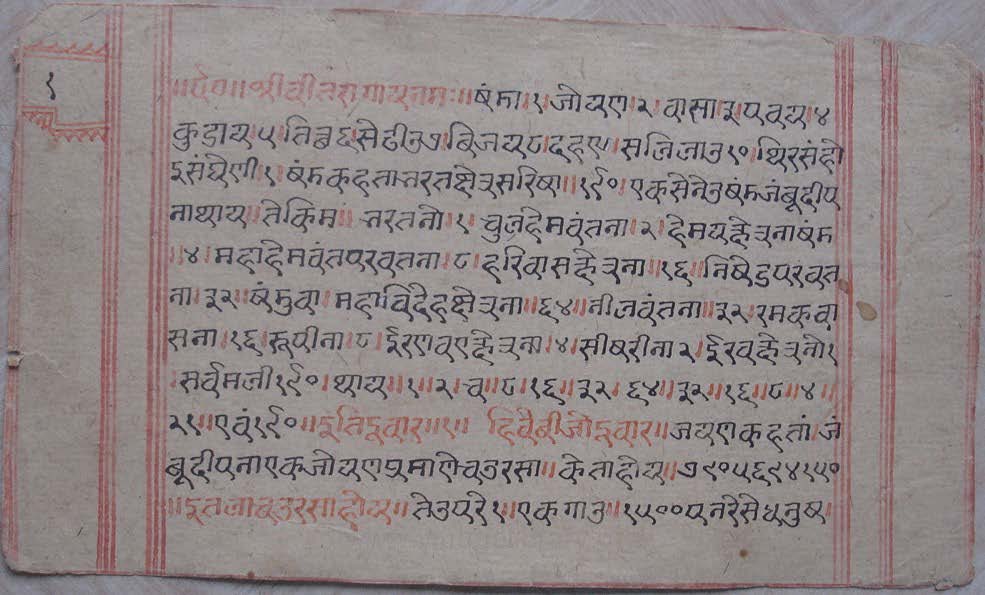 ॥श्रीवीतरागायनमः॥षंमा।१।जोयण।२।वासा।३।पवय।४
कुडाय।५।तिब।६।सेढीउ।७।विजय।८।दह।९।सलिलाउ१०।थिरसंहो
इसंघेणी।१।षंमकहतानरतक्षेत्रसरिषा॥१९०।एकसेनेउषंमजंबूदीप
नाथाय।तेकिम।नरतनो।१।चुलहेमवंतना।२।हेमवयक्षेत्रनाषंम
॥४।महाहेमवंतपरवतना।८।हरिवासक्षेत्रना॥१६॥निषेढपरवत
ना।३२।षंमुवा।महाविदेहक्षेत्रना॥६४॥नीलवंतना॥३२।रमकवा
सना।१६।रूपीना।८।इरणवएक्षेत्रना।४।सीषरीना२।इरवक्षेत्रनो१
।सर्वमली१९०।थाय।१।२।च।८।१६॥३२।६४।३२॥१६॥८॥४॥
२१॥एवं१९०॥इतिदुवार॥१॥ हिवेबीजोदुवार॥जयणकहतां।जं
बूदीपनाएकजोयणप्रमाणेचउरसा॥केताहोय॥७९०५६९४१५०
॥इतलाचउरसाहोय॥तेउपरे१॥एकगाउ॥१५००पनरेसेधनुष।
१